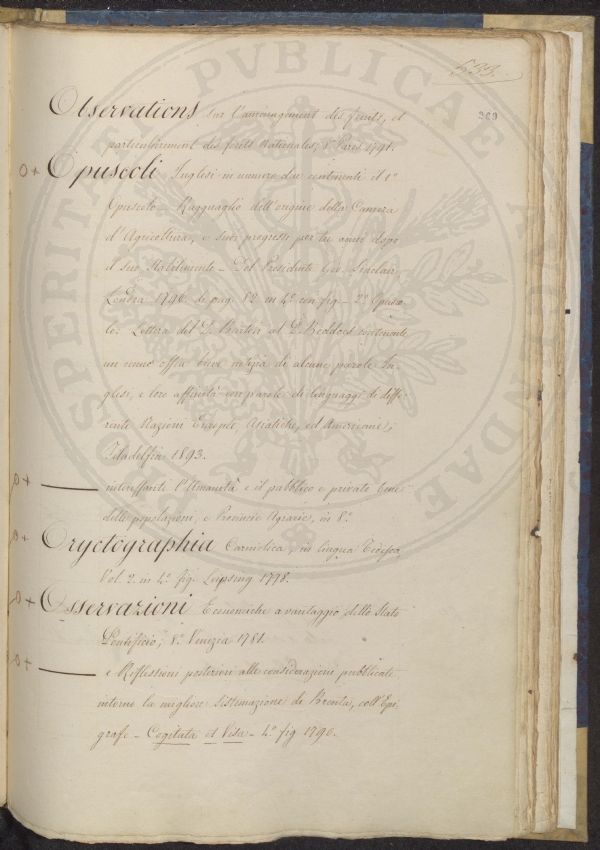 533.
369
Observations sur l'aménagement des forêts, et
particulièrement des forêts Nationales; 8º Paris 1791.
O+ Opuscoli Inglesi in numero due contenenti il 1º
Opuscolo _ Ragguaglio dell'origine della Camera
d'Agricoltura, e suoi progressi per tre anni dopo
il suo Stabilimento _ Del Presidente Gio. Sinclair,
Londra 1796 di pag. 82 in 4º con fig _ 2º Opusco-
lo: Lettera del D. Barton al D. Beddoes contenente
un cenno ossia breve notizia di alcune parole In-
glesi, e loro affinità con parole di linguaggi di diffe-
rente Nazioni Europee Asiatiche, ed Americane;
Filadelfia 1803.
O+ ——— interessanti l'Umanità e il pubblico e privato bene
delle popolazioni, e Provincie Agrarie, in 8º
O+ Oryctographia Carniolica, in lingua Tedesca
Vol. 2. in 4º fig. Leipsing 1778.
O+ Osservazioni Economiche a vantaggio dello Stato
Pontificio; 8º Venezia 1781.
O+ ——— e Riflessioni posteriori alle considerazioni pubblicate
intorno la migliore sistemazione di Brenta, coll'Epi-
grafe _ Cogitata et Visa _ 4º fig 1790.
PUBLICAE
PROSPERITATI
AUGENDAE